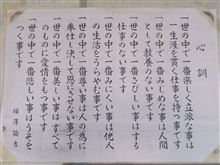 心訓
一世の中で一番楽しく立派な事は
一生涯を貫く仕事を持つ事です
一世の中で一番みじめな事は人間
として教養のない事です
一世の中で一番さびしい事はする
仕事のない事です
一世の中で一番みにくい事は他人
の生活をうらやむ事です
一世の中で一番尊い事は人の為に
奉仕し決して恩にきせない事です
一世の中で一番美しい事はすべて
のものに愛情をもつ事です
一世の中で一番悲しい事はうそを
つく事です
福澤諭吉